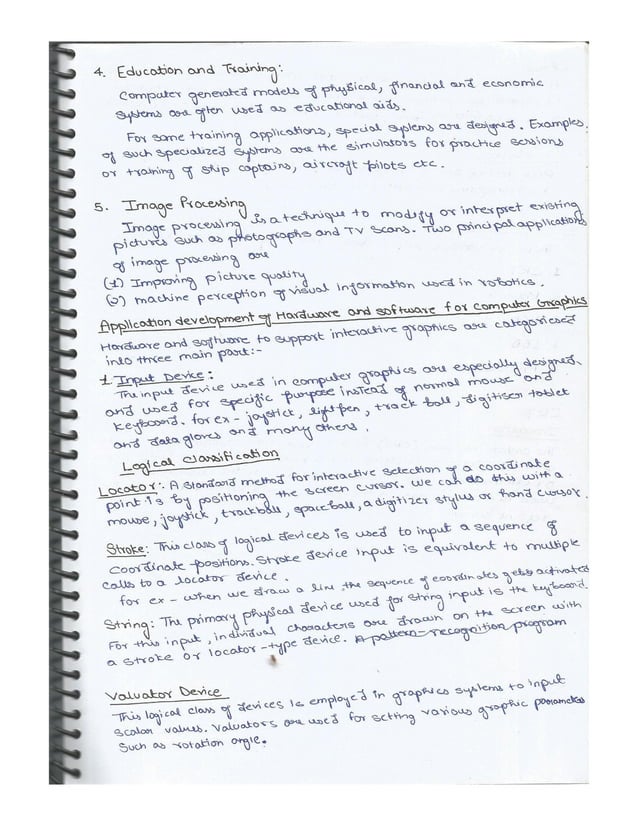 4. Education and Training:
Computer generated models of physical, financial and economic
systems are often used as educational aids.
For some training applications, special systems are designed. Examples
of such specialized systems are the simulators for practice sessions
or training of ship captains, aircraft pilots etc.
5. Image Processing
Image processing is a technique to modify or interpret existing
pictures such as photographs and TV scans. Two principal applications
of image processing are
(1) Improving picture quality
(2) machine perception of visual Information used in robotics.
Application development of Hardware and software for computer Graphics
Hardware and software to support interactive graphics are categoriesed
into three main part:-
1. Input Device:
The input device used in computer graphics are especially designed.
and used for specific purpose instead of normal mouse and
keyboard. for ex - joystick, light pen, track ball, digitiser tablet
and data gloves and many others.
Logical classification
Locator:. A standard method for interactive selection of a coordinate
point is by positioning the screen cursor. we can do this with a
mouse, joystick, trackball, spaceball, a digitizer stylus or hand cursor.
Stroke: This class of logical devices is used to input a sequence of
coordinate positions. Stroke device input is equivalent to multiple
calls to a locator device.
for ex - when we draw a line, the sequence of coordinates gets activated
String: The primary physical device used for string input is the keyboard.
For this input, individual characters are drawn on the screen with
a stroke or locator-type device. A pattern-recognition program
Valuator Device
This logical class of devices is employed in graphics systems to input
scalar values. Valuators are used for setting various graphic parameters
Such as rotation angle.